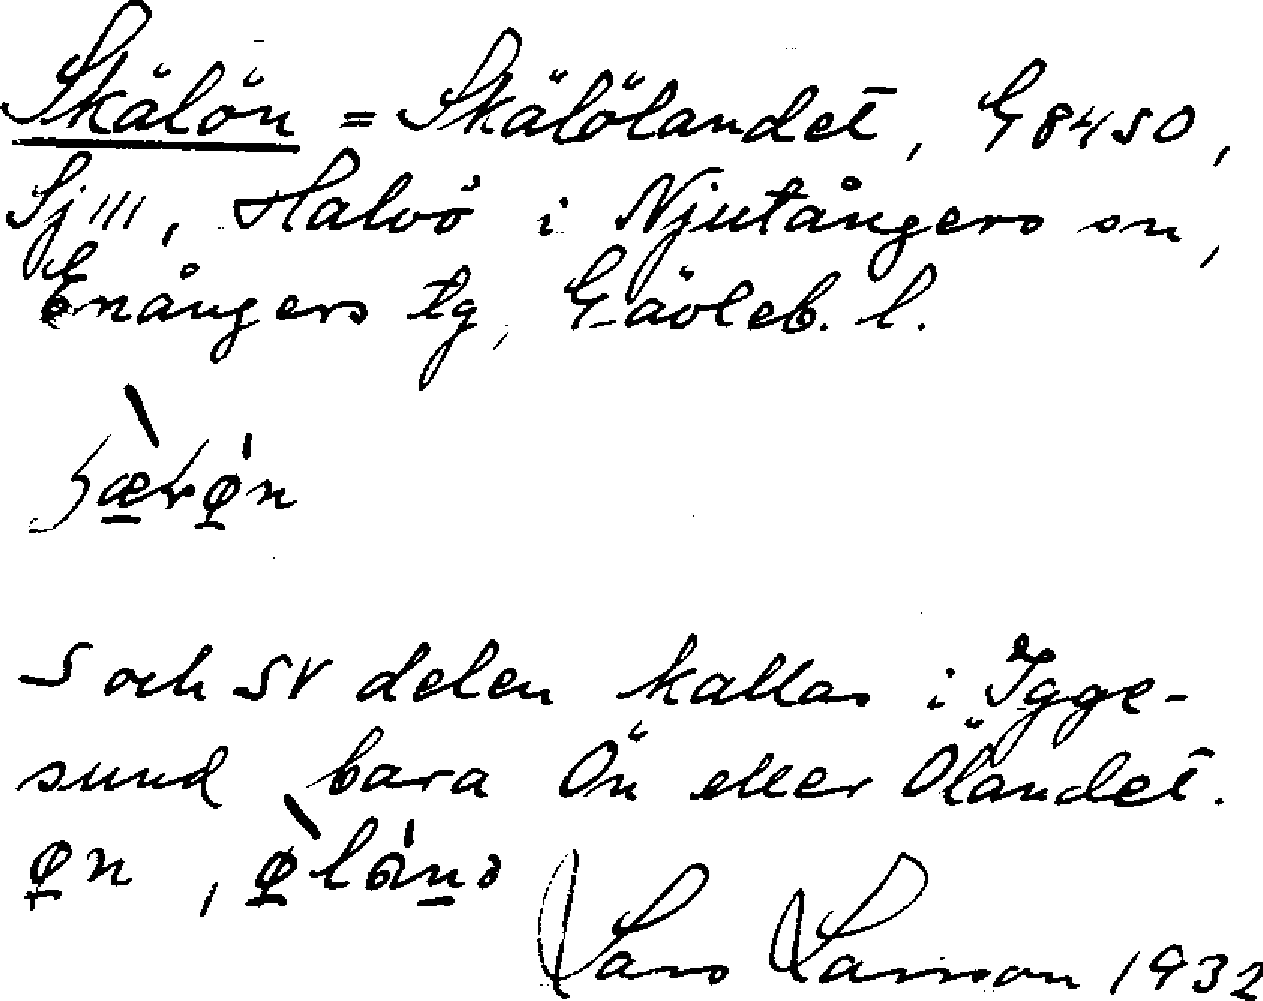 Skälön = Skälölandet, G8450,
Sj III, Halvö i Njutångers sn,
Enångers tg, Gävleb. l.
S och SV delen kallas i Igge-
sund bara Ön eller Ölandet.
øn,
Lars Larsson 1932